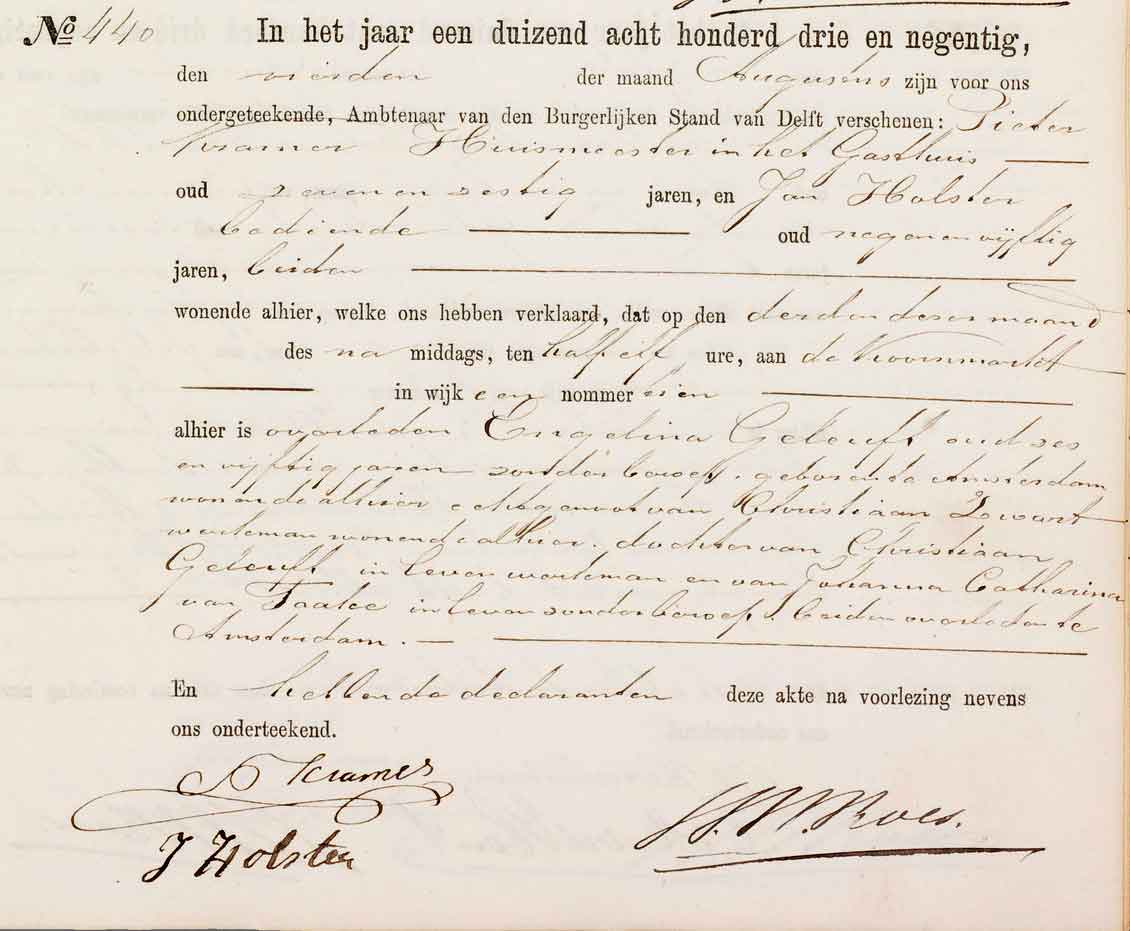 No 440 In het jaar een duizend acht honderd drie en negentig,
den vierden der maand Augustus zijn voor ons
ondergeteekende, Ambtenaar van den Burgerlijken Stand van Delft verschenen: Pieter
Kramer Huismeester in het Gasthuis
oud zeven en zestig jaren, en Jan Holster
bediende oud negen en vijftig
jaren, beiden
wonende alhier, welke ons hebben verklaard, dat op den derden dezer maand
des na middags, ten half elf ure, aan de Koornmarkt
in wijk een nommer
alhier is overleden Engelina Geleuft oud zes
en vijftig jaren zonder beroep, geboren te Amsterdam
wonende alhier echtgenoot van Christiaan Zwart
werkman wonende alhier, dochter van Christiaan
Geleuft in leven werkman en van Johanna Catharina
van in leven zonder beroep, beiden overleden te
Amsterdam.
En hebben de declaranten deze akte na voorlezing nevens
ons onderteekend.
P Kramer
J Holster